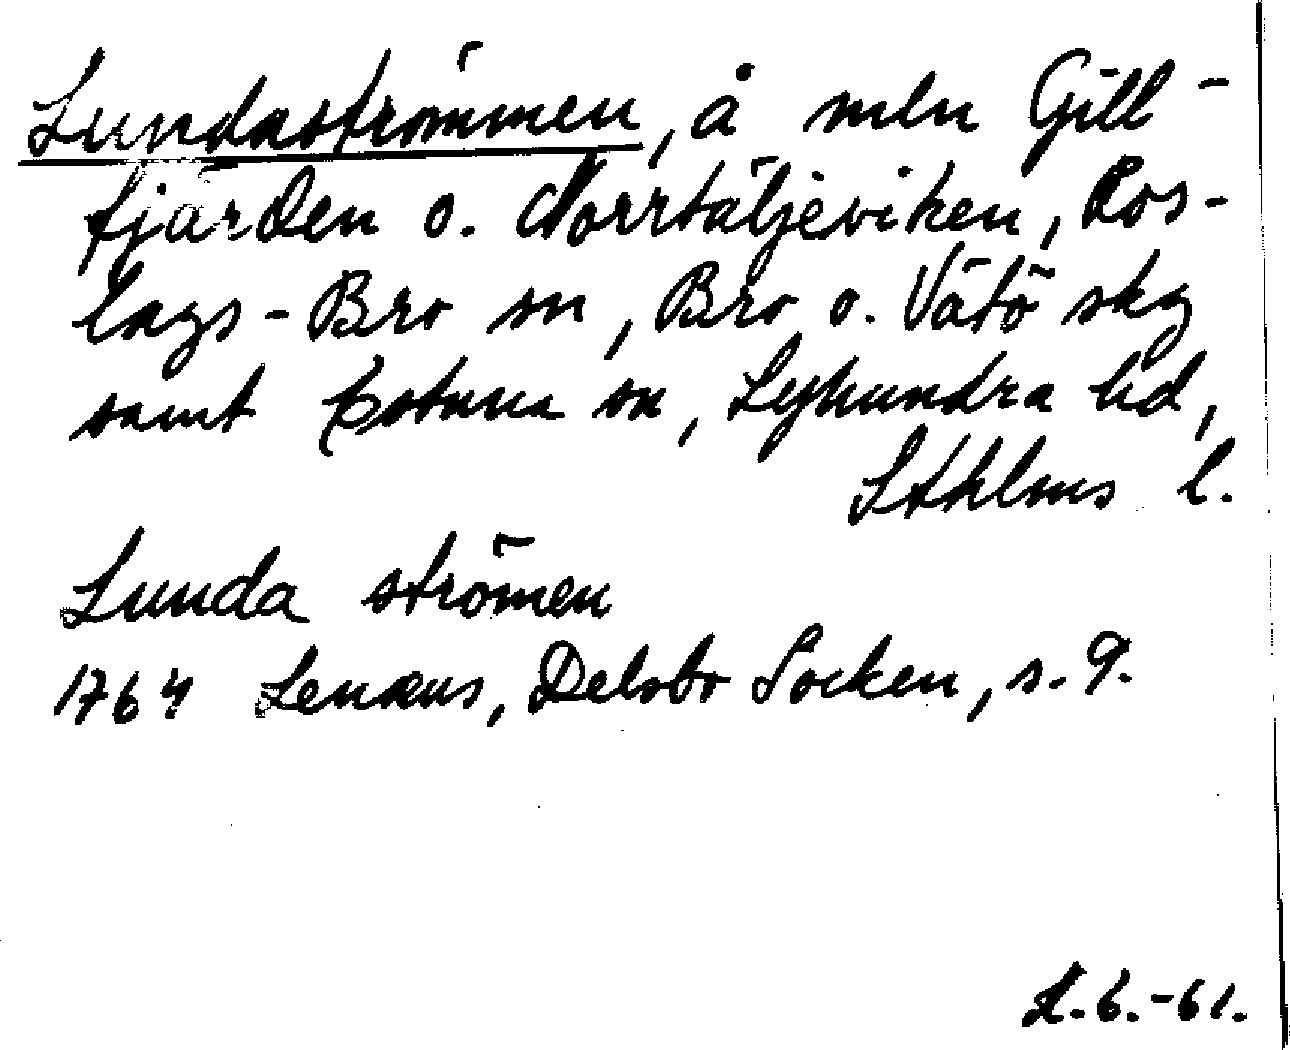 Lundaströmmen, å mln Gill-
fjärden o. Norrtäljeviken, Ros-
lags-Bro sn, Bro o. Vätö skg
samt Estuna sn, Lyhundra hd,
Sthlms l.
Lunda strömen
1764 Lenæus, Delsbo Socken, s. 9.
L.G.-61.